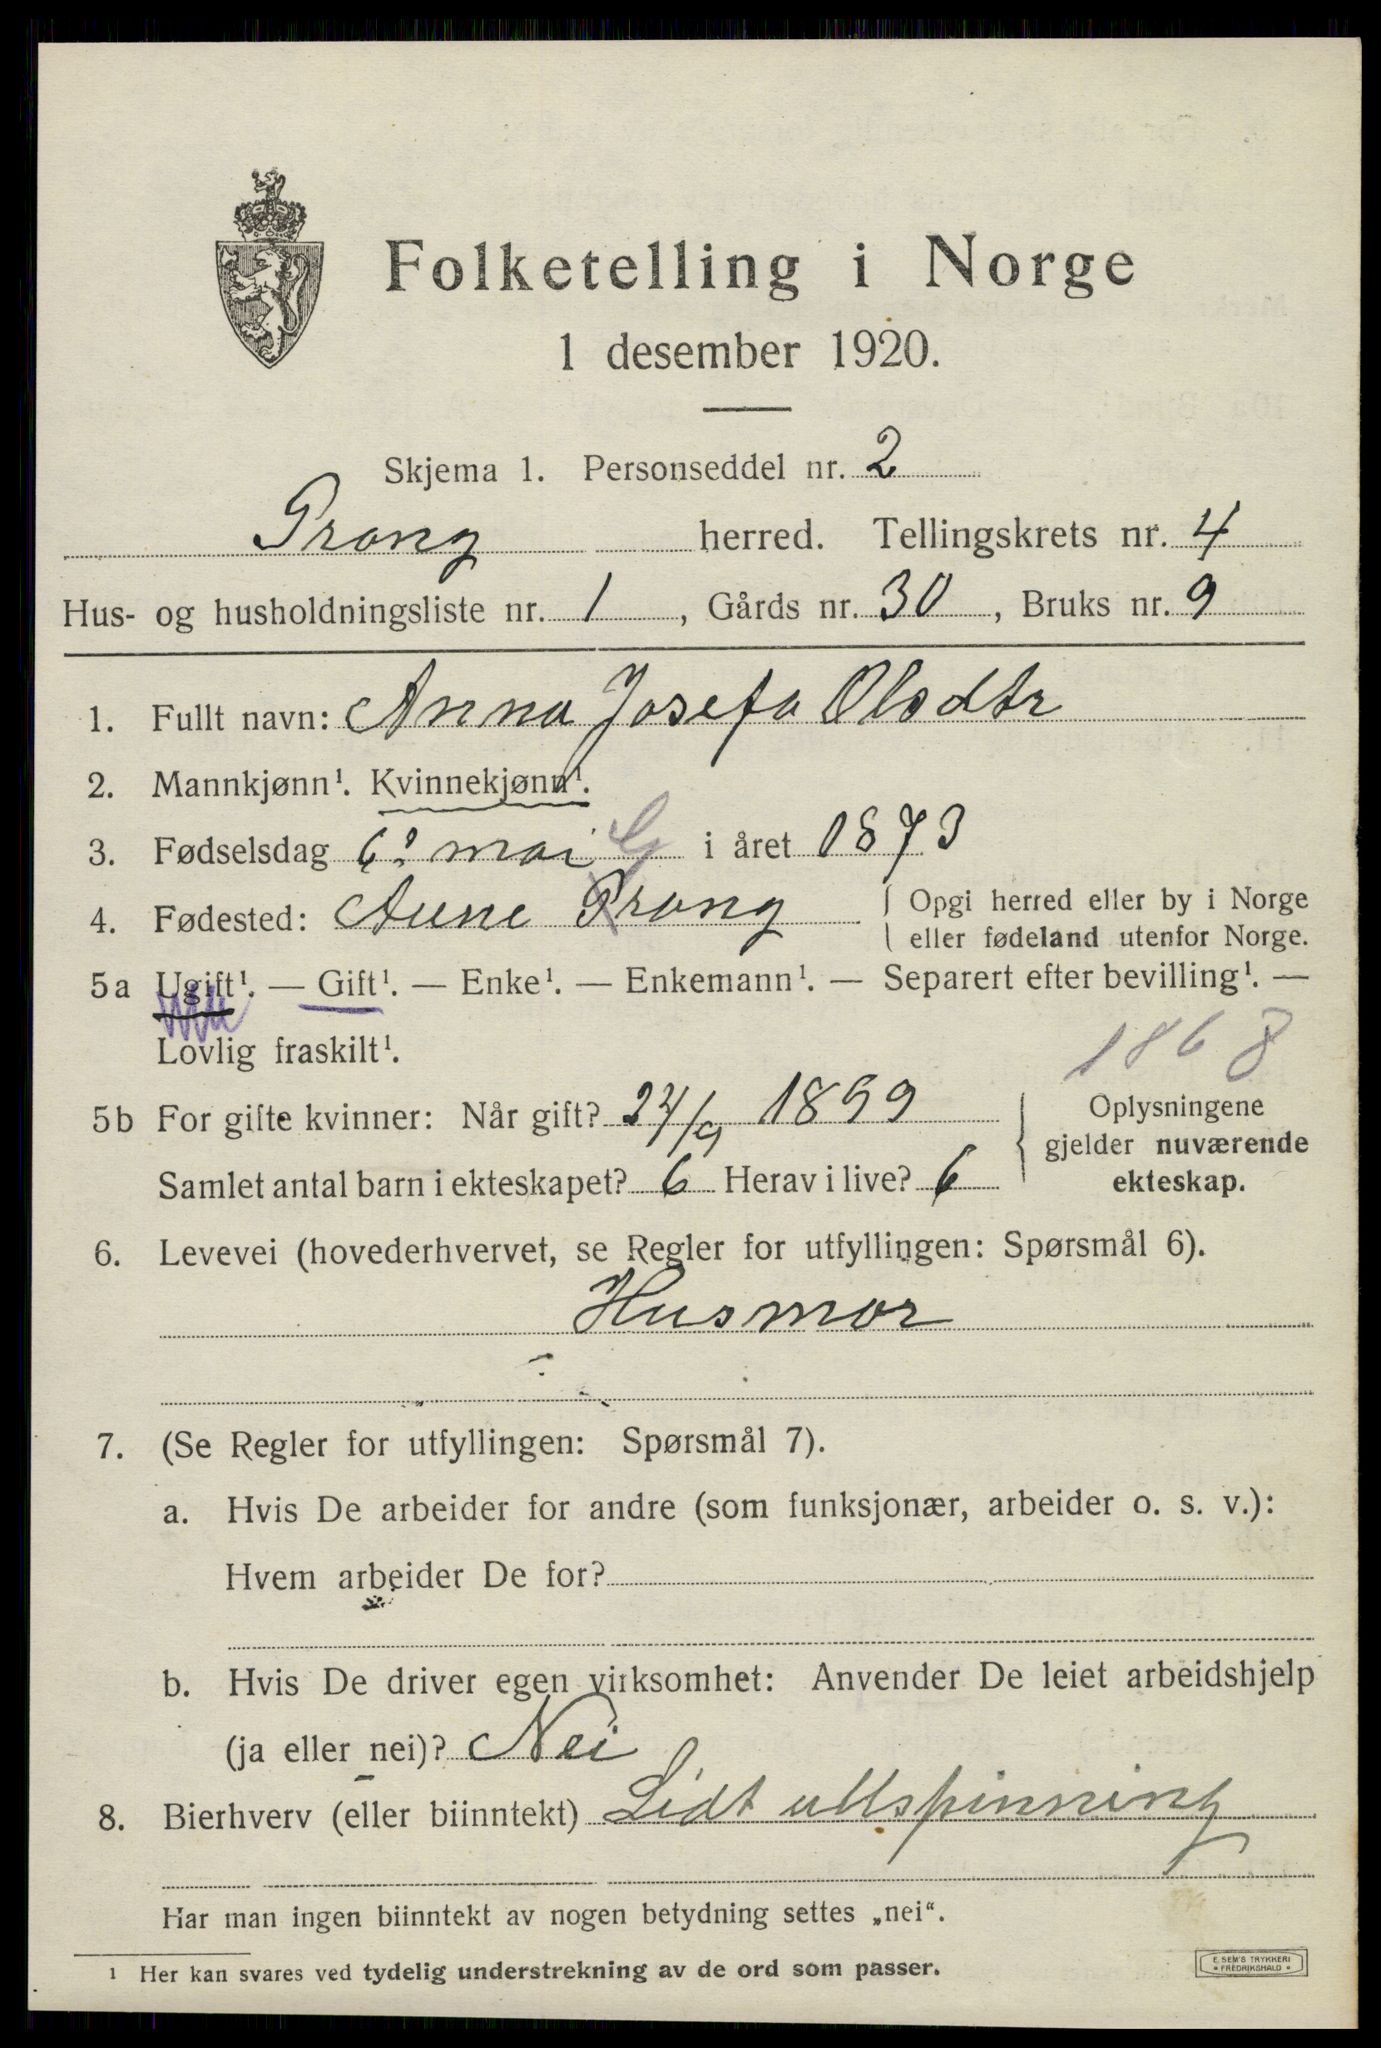 Folketelling i Norge
1 desember 1920.
Skjema 1. Personseddel nr. 2
Prong herred. Tellingskrets nr. 4
Hus- og husholdningsliste nr. 1, Gårds nr. 30, Bruks nr. 9
1. Fullt navn: Anna Josefa Olsdtr
2. Mannkjønn¹. Kvinnekjønn¹.
3. Fødselsdag 6? mai G i året 1873
4. Fødested: Aune Prong { Opgi herred eller by i Norge
eller fødeland utenfor Norge.
5a Ugift¹. — Gift¹. — Enke¹. — Enkemann¹. — Separert efter bevilling¹. —
Lovlig fraskilt¹.
1868
5b For gifte kvinner: Når gift? 24/9 1899
Samlet antal barn i ekteskapet? 6 Herav i live? 6
{ Oplysningene
gjelder nuværende
ekteskap.
6. Levevei (hovederhvervet, se Regler for utfyllingen: Spørsmål 6).
Husmor
7. (Se Regler for utfyllingen: Spørsmål 7).
a. Hvis De arbeider for andre (som funksjonær, arbeider o. s. v.):
Hvem arbeider De for?
b. Hvis De driver egen virksomhet: Anvender De leiet arbeidshjelp
(ja eller nei)? Nei
8. Bierhverv (eller biinntekt) Lidt ullspinning
Har man ingen biinntekt av nogen betydning settes „nei".
¹ Her kan svares ved tydelig understrekning av de ord som passer.
E. SEM'S TRYKKERI
FREDRIKSHALD